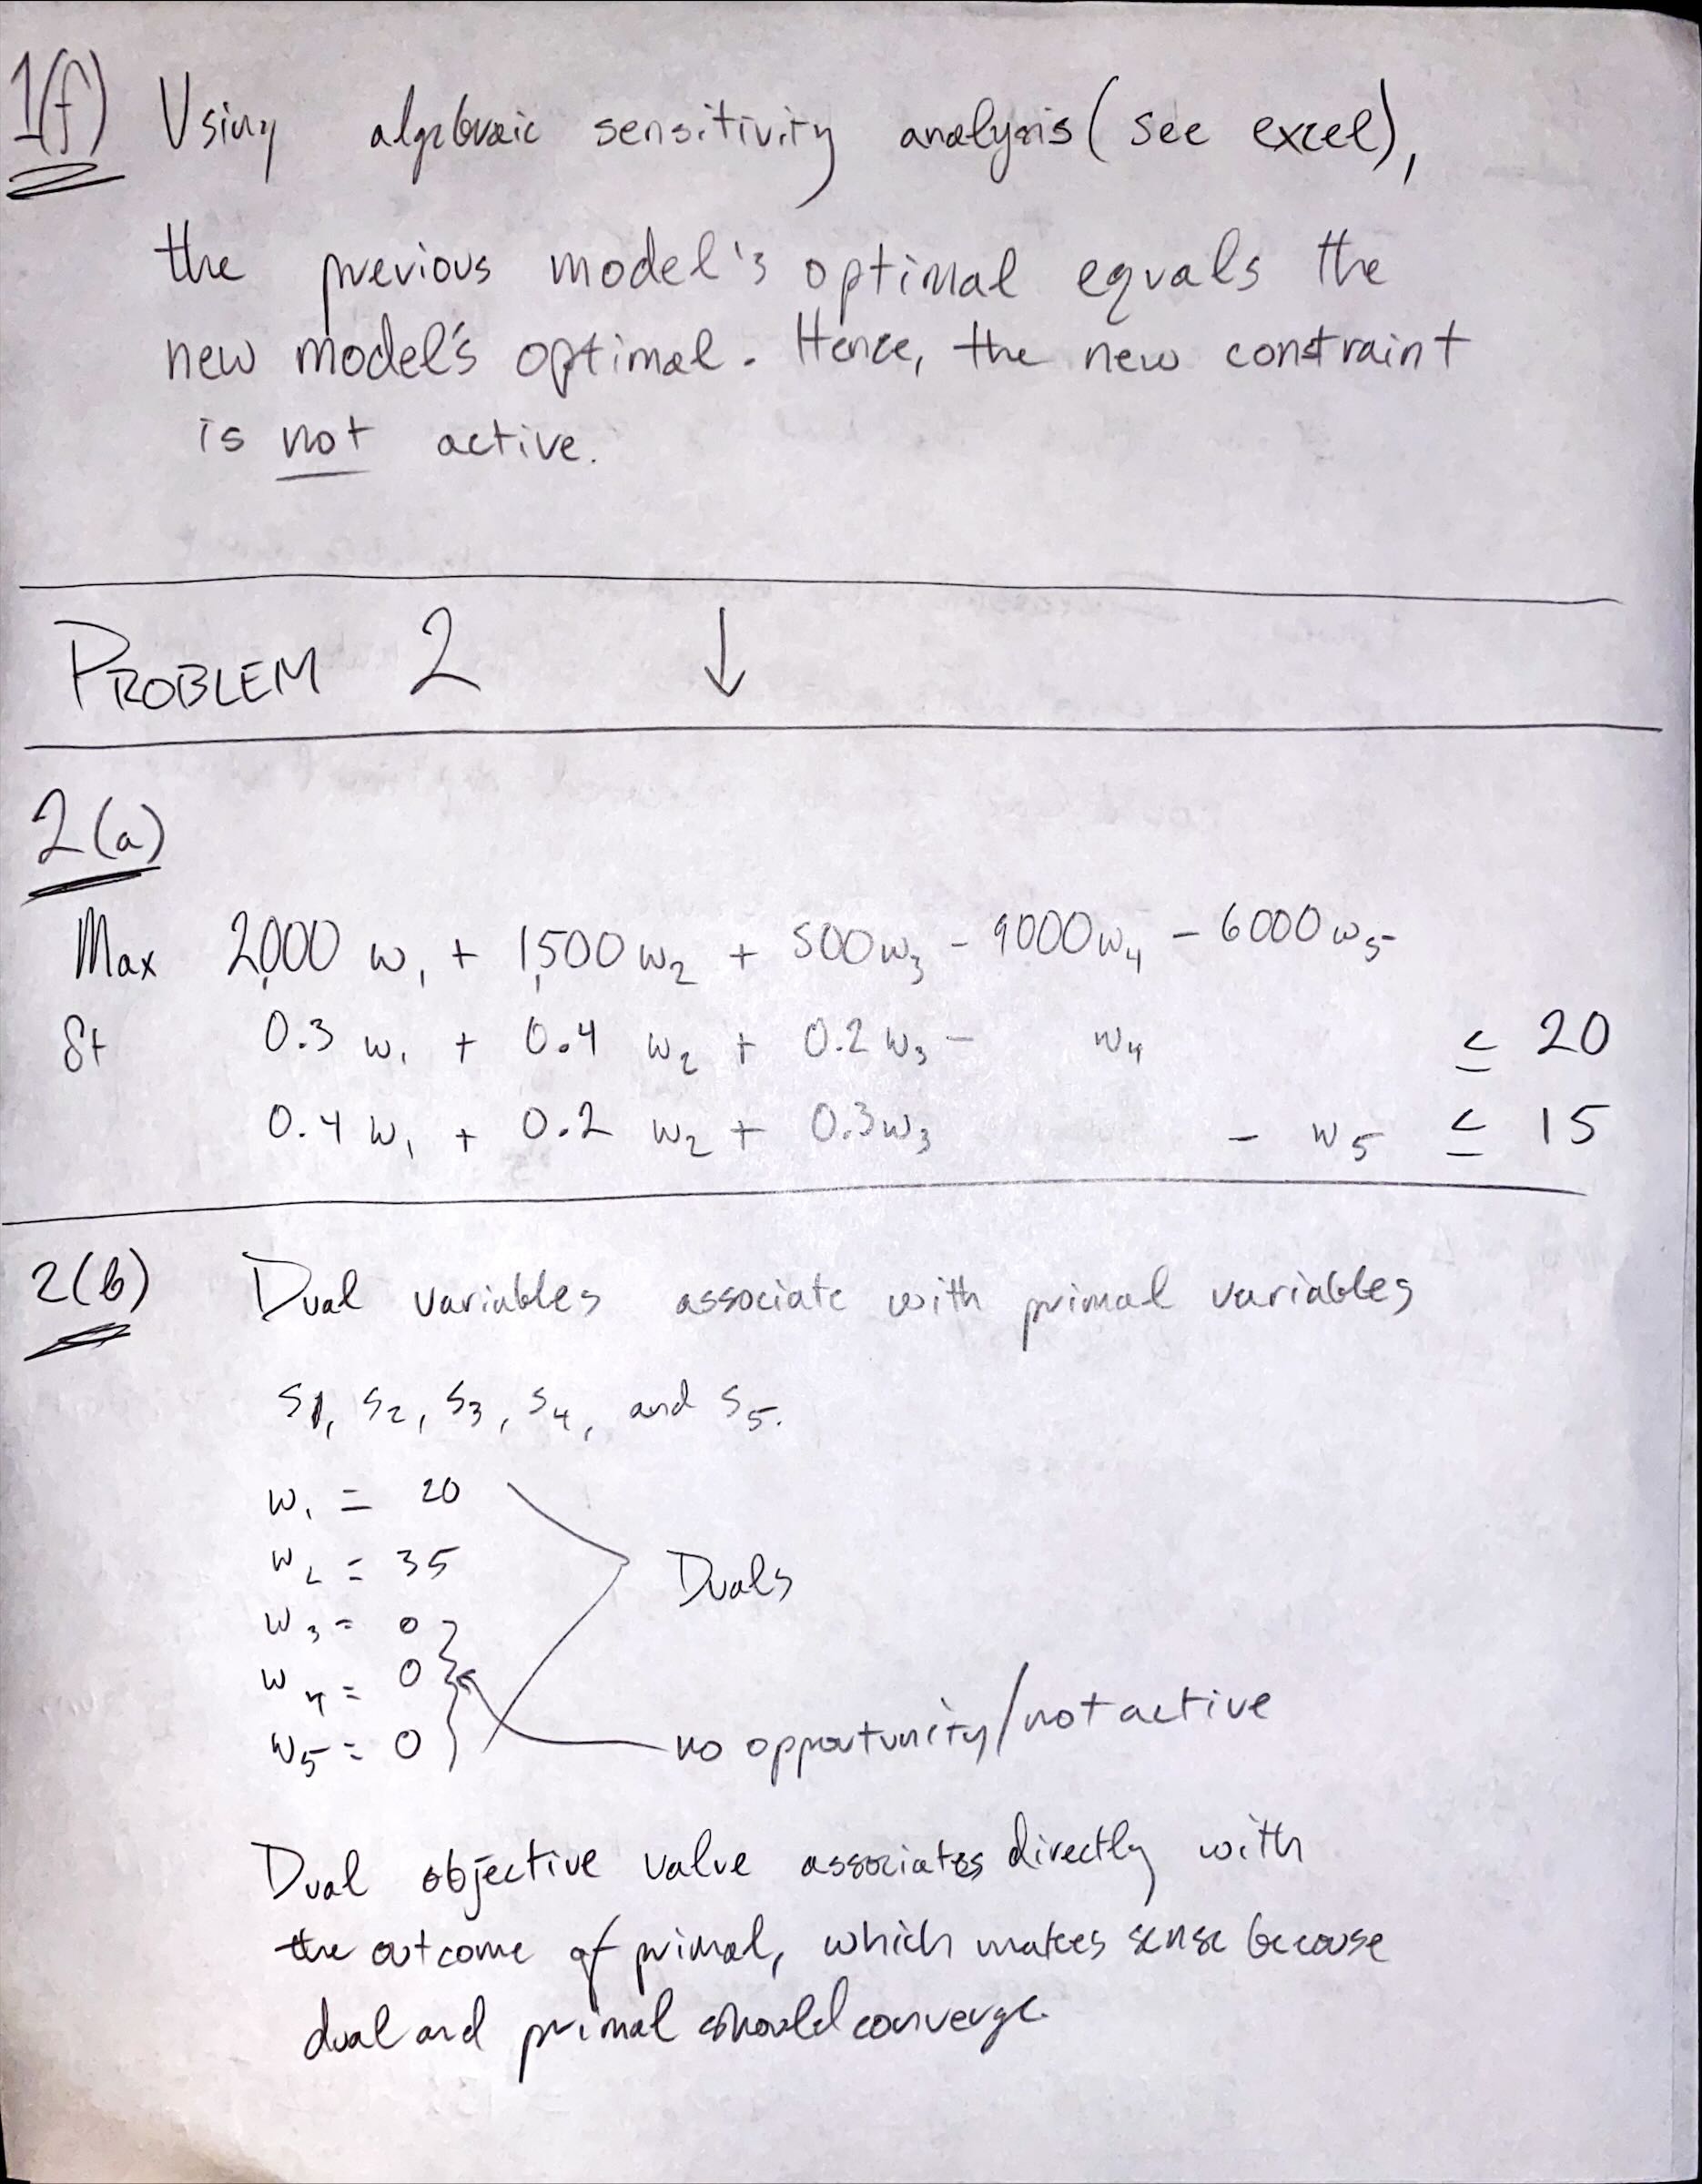 1(f) Using algebraic sensitivity analysis (see excel),
the previous model's optimal equals the
new model's optimal. Hence, the new constraint
is not active.
PROBLEM 2 ↓
2(a)
Max 2,000 w₁ + 1,500 w₂ + 500 w₃ - 9000 w₄ - 6000 w₅
St 0.3 w₁ + 0.4 w₂ + 0.2 w₃ - w₄ ≤ 20
0.4 w₁ + 0.2 w₂ + 0.3 w₃ - w₅ ≤ 15
2(b) Dual variables associate with primal variables
s₁, s₂, s₃, s₄, and s₅.
w₁ = 20
w₂ = 35
Duals
w₃ = 0
w₄ = 0
no opportunity/not active
w₅ = 0
Dual objective value associates directly with
the outcome of primal, which makes sense because
dual and primal should converge.